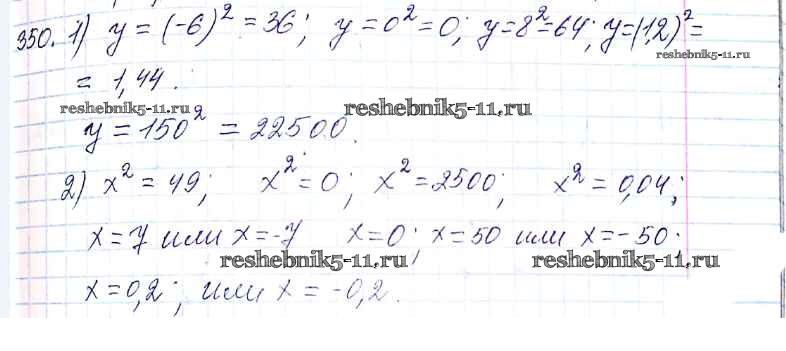 350. 1) y = (-6)² = 36; y = 0² = 0; y = 8² = 64; y = (1,2)² =
reshebnik5-11.ru
= 1,44.
reshebnik5-11.ru reshebnik5-11.ru
y = 150² = 22500.
2) x² = 49; x² = 0; x² = 2500; x² = 0,04;
x = 7 или x = -7 x = 0; x = 50 или x = -50.
reshebnik5-11.ru reshebnik5-11.ru
x = 0,2; или x = -0,2.